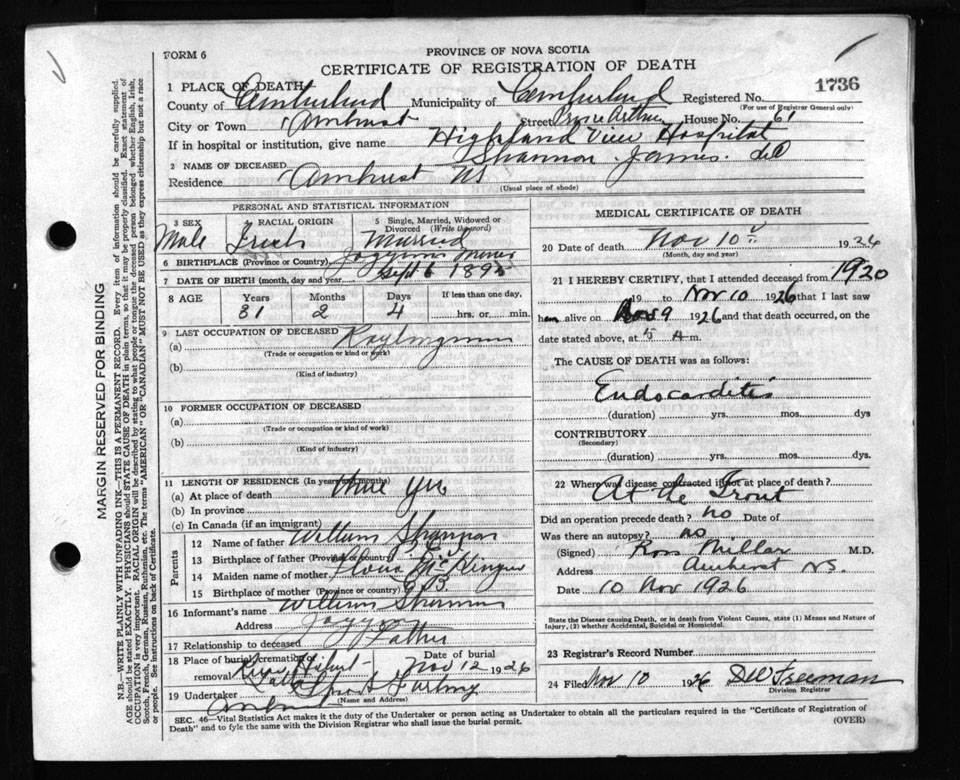 FORM 6
PROVINCE OF NOVA SCOTIA
CERTIFICATE OF REGISTRATION OF DEATH
1736
1 PLACE OF DEATH
County of Cumberland Municipality of Cumberland Registered No.
(For use of Registrar General only)
City or Town Amherst Street Prince Arthur House No. 61
If in hospital or institution, give name Highland View Hospital
2 NAME OF DECEASED Shannon James
Residence Amherst NS
(Usual place of abode)
PERSONAL AND STATISTICAL INFORMATION
3 SEX Male
4 RACIAL ORIGIN Irish
5 Single, Married, Widowed or Divorced (Write the word) Married
6 BIRTHPLACE (Province or Country) Joggins Mines
7 DATE OF BIRTH (month, day and year) Sept 6 1895
8 AGE Years Months Days If less than one day,
31 2 4 hrs. or min.
9 LAST OCCUPATION OF DECEASED
(a)
(Trade or occupation or kind or work)
(b)
(Kind of industry)
10 FORMER OCCUPATION OF DECEASED
(a)
(Trade or occupation or kind of work)
(b)
(Kind of industry)
11 LENGTH OF RESIDENCE (In years and months)
(a) At place of death yrs
(b) In province
(c) In Canada (if an immigrant)
Parents
12 Name of father William Shannon
13 Birthplace of father (Province or country)
14 Maiden name of mother
15 Birthplace of mother (Province or country) G.B.
16 Informant's name William Shannon
Address Joggins
17 Relationship to deceased Father
18 Place of burial, cremation, removal River Hebert Date of burial Nov 12 1926
19 Undertaker
(Name and Address)
Amherst
MEDICAL CERTIFICATE OF DEATH
20 Date of death Nov 10 1926
(Month, day and year)
21 I HEREBY CERTIFY, that I attended deceased from 1920
19 to Nov 10 1926 that I last saw
him alive on Nov 9 1926 and that death occurred, on
date stated above, at 5 A m.
The CAUSE OF DEATH was as follows:
Endocarditis
(duration) yrs. mos. dys
CONTRIBUTORY
(Secondary)
(duration) yrs. mos. dys.
22 Where was disease contracted if not at place of death?
At the Front
Did an operation precede death? no Date of
Was there an autopsy? no
(Signed) Ross Millar M.D.
Address Amherst NS.
Date 10 Nov 1926
State the Disease causing Death, or in death from Violent Causes, state (1) Means and Nature of
Injury, (2) whether Accidental, Suicidal or Homicidal.
23 Registrar's Record Number
24 Filed Nov 10 1926 DW Freeman
Division Registrar
SEC. 46—Vital Statistics Act makes it the duty of the Undertaker or person acting as Undertaker to obtain all the particulars required in the "Certificate of Registration of
Death" and to fyle the same with the Division Registrar who shall issue the burial permit.
(OVER)
MARGIN RESERVED FOR BINDING
N.B.—WRITE PLAINLY WITH UNFADING INK—THIS IS A PERMANENT RECORD. Every item of information should be carefully supplied.
AGE should be stated EXACTLY. PHYSICIANS should STATE CAUSE OF DEATH in plain terms, so that it may be properly classified. Exact statement of
OCCUPATION is very important. RACIAL ORIGIN will be described by stating to what people or tongue the deceased person belonged whether English, Irish,
Scotch, French, German, Russian, Ruthenian, etc. The terms "AMERICAN" OR "CANADIAN" MUST NOT BE USED as they express citizenship but not a race
or people. See instructions on back of Certificate.